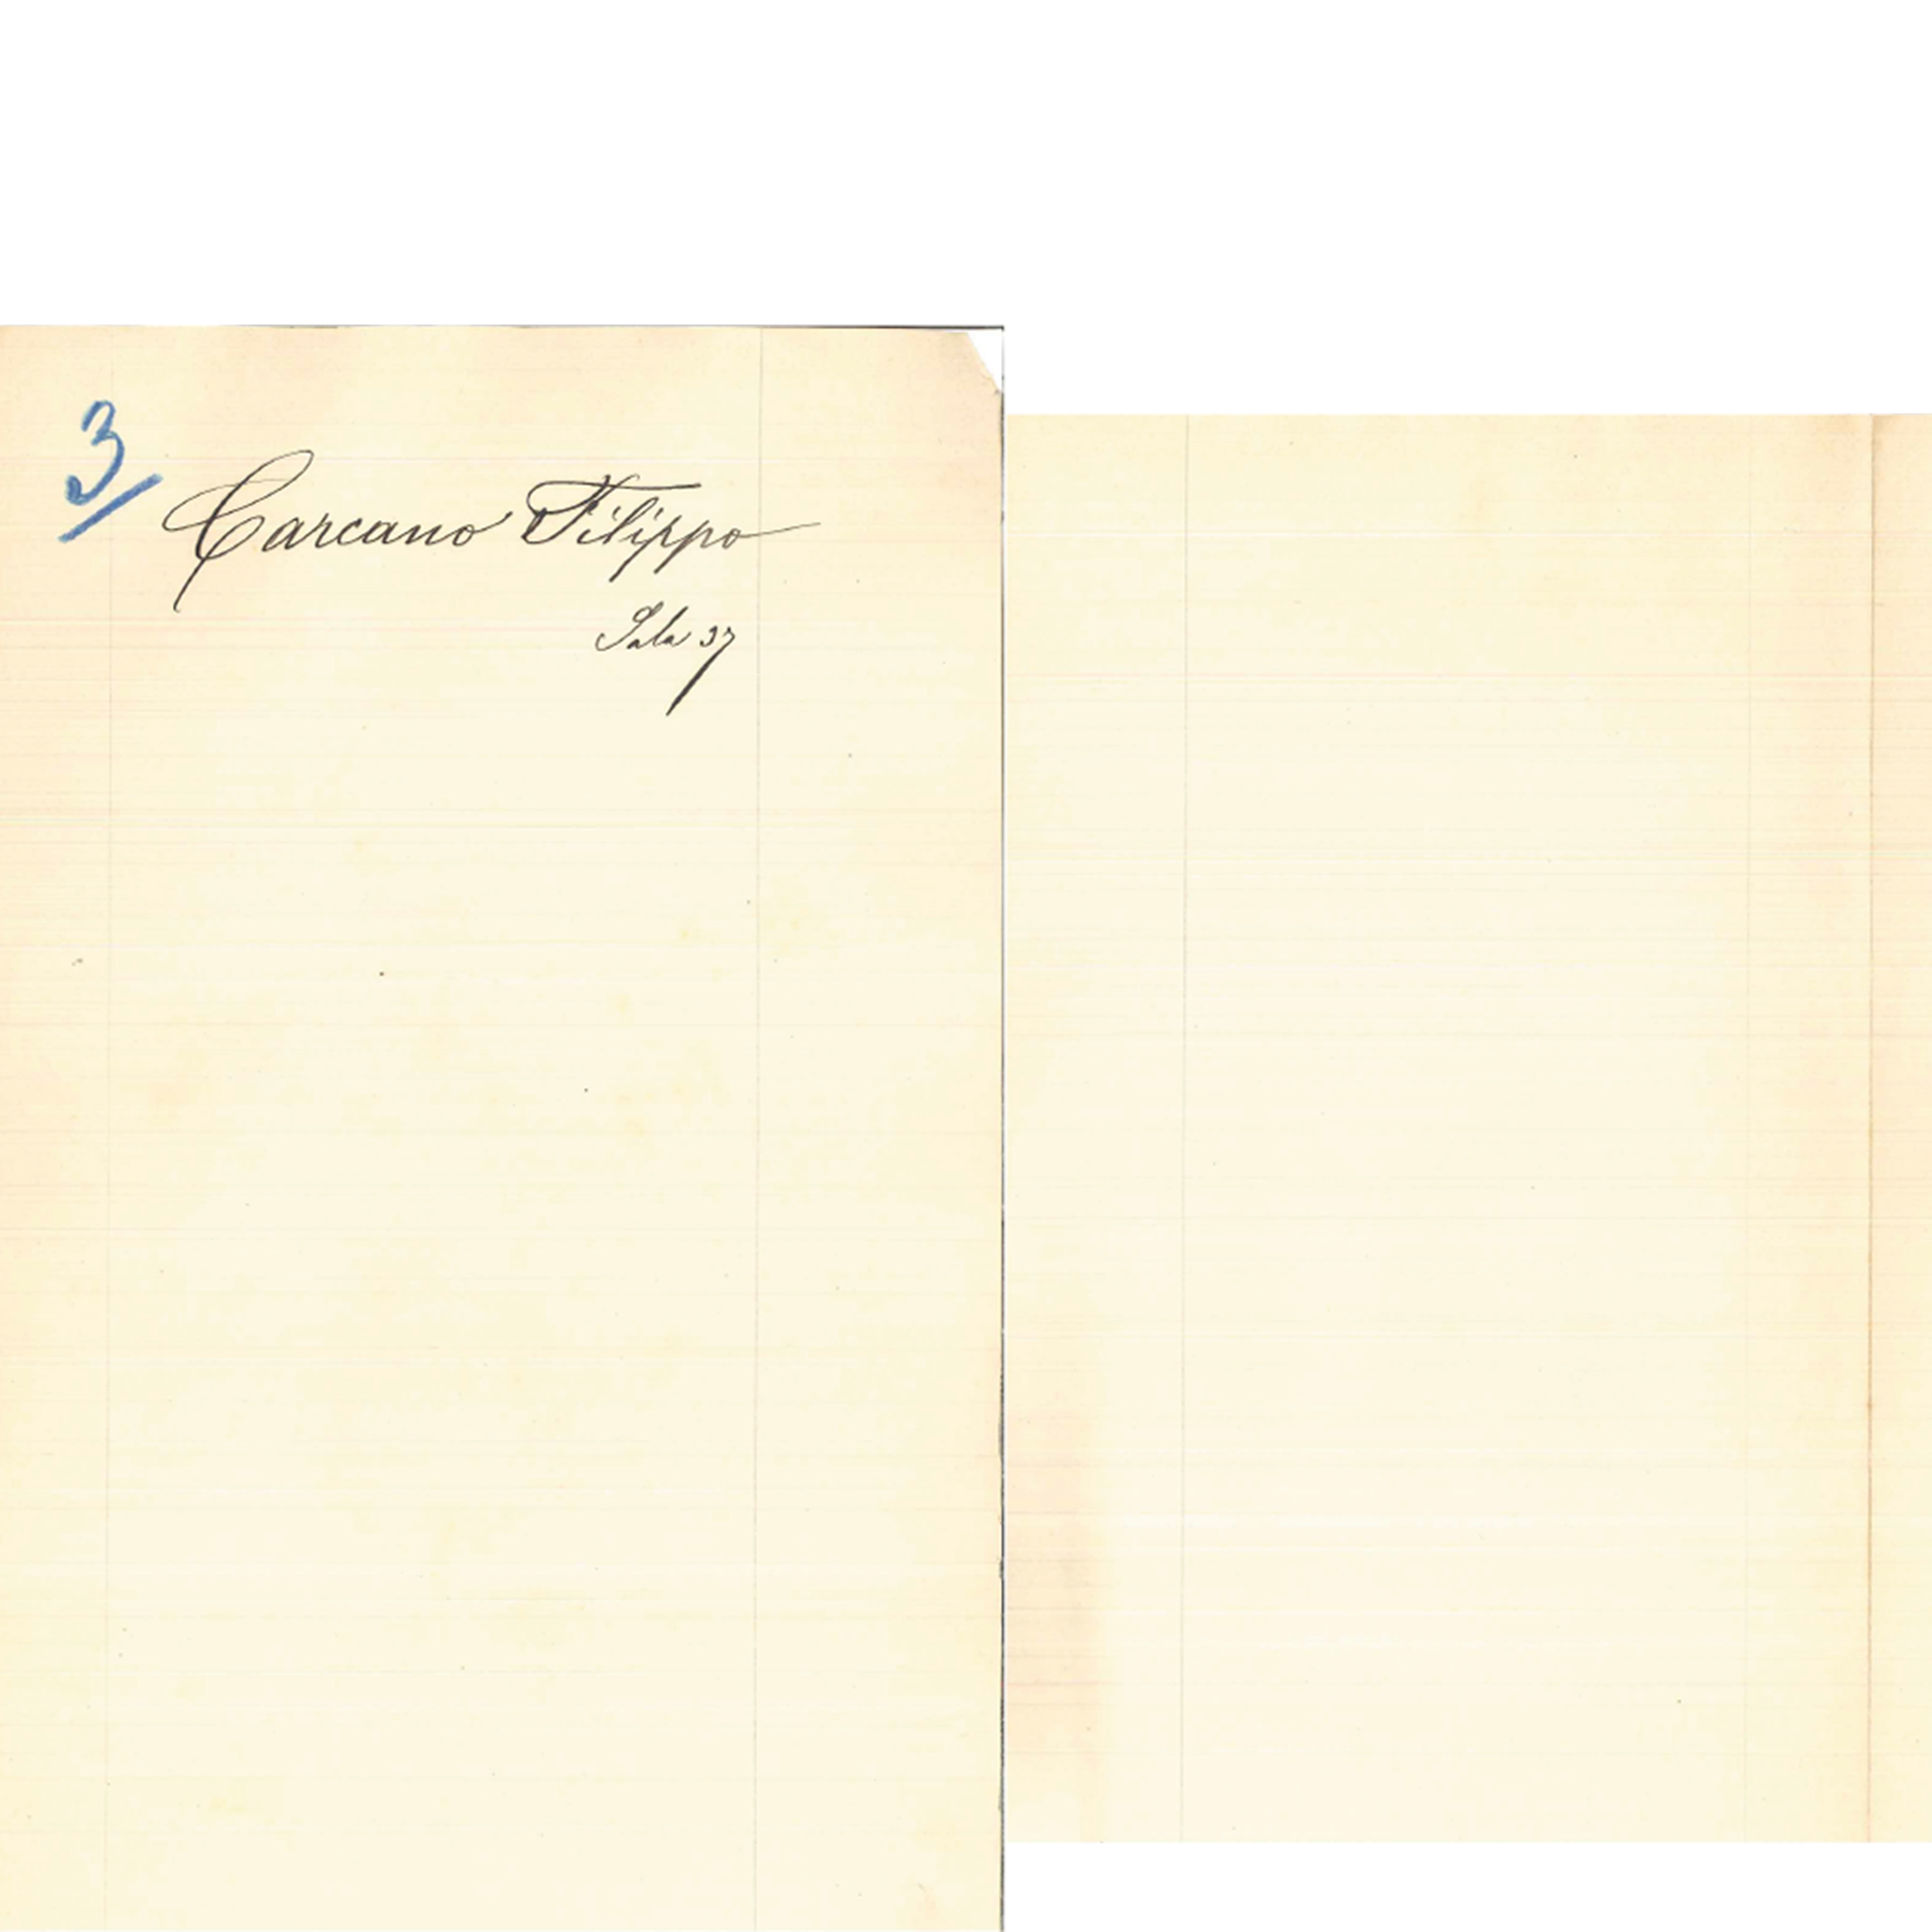 3
Carcano Filippo
Sala 37